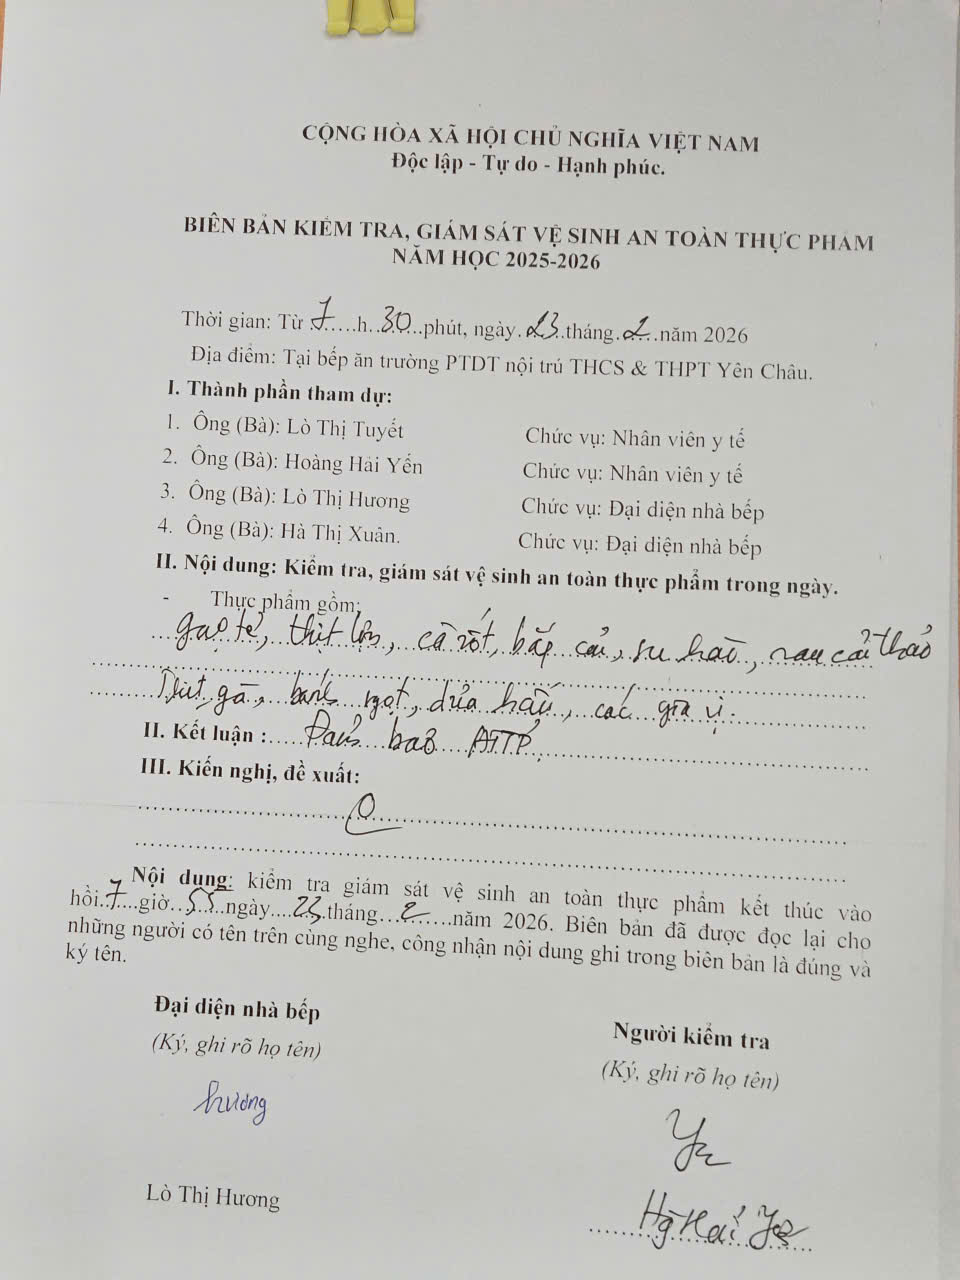 CỘNG HÒA XÃ HỘI CHỦ NGHĨA VIỆT NAM
Độc lập - Tự do - Hạnh phúc.
BIÊN BẢN KIỂM TRA, GIÁM SÁT VỆ SINH AN TOÀN THỰC PHẨM
NĂM HỌC 2025-2026
Thời gian: Từ 7 h 30 phút, ngày 23 tháng 2 năm 2026
Địa điểm: Tại bếp ăn trường PTDT nội trú THCS & THPT Yên Châu.
I. Thành phần tham dự:
1. Ông (Bà): Lò Thị Tuyết Chức vụ: Nhân viên y tế
2. Ông (Bà): Hoàng Hải Yến Chức vụ: Nhân viên y tế
3. Ông (Bà): Lò Thị Hương Chức vụ: Đại diện nhà bếp
4. Ông (Bà): Hà Thị Xuân. Chức vụ: Đại diện nhà bếp
II. Nội dung: Kiểm tra, giám sát vệ sinh an toàn thực phẩm trong ngày.
- Thực phẩm gồm:
gạo tẻ, thịt lợn, cà rốt, bắp cải, su hào, rau cải thảo
Thịt gà, bánh ngọt, dưa hấu, các gia vị.
II. Kết luận : Đảm bảo ATTP
III. Kiến nghị, đề xuất:
0
Nội dung: kiểm tra giám sát vệ sinh an toàn thực phẩm kết thúc vào
hồi 7 giờ 55 ngày 23 tháng 2 năm 2026. Biên bản đã được đọc lại cho
những người có tên trên cùng nghe, công nhận nội dung ghi trong biên bản là đúng và
ký tên.
Đại diện nhà bếp Người kiểm tra
(Ký, ghi rõ họ tên) (Ký, ghi rõ họ tên)
Hương
Lò Thị Hương Hg Hải Yến